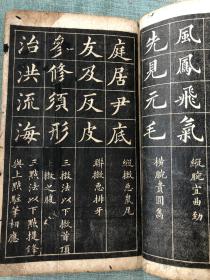 風鳳飛氣
縱腕宜曲勁
先見元毛
橫腕貴圓雋
庭居尹底
縱撇忌鼠尾
友及反皮
聯撇忌排牙
參修須形
三撇法以下撇首頂
撇之腹
治洪流海
三點法以下點提鋒
與上點駐筆相應